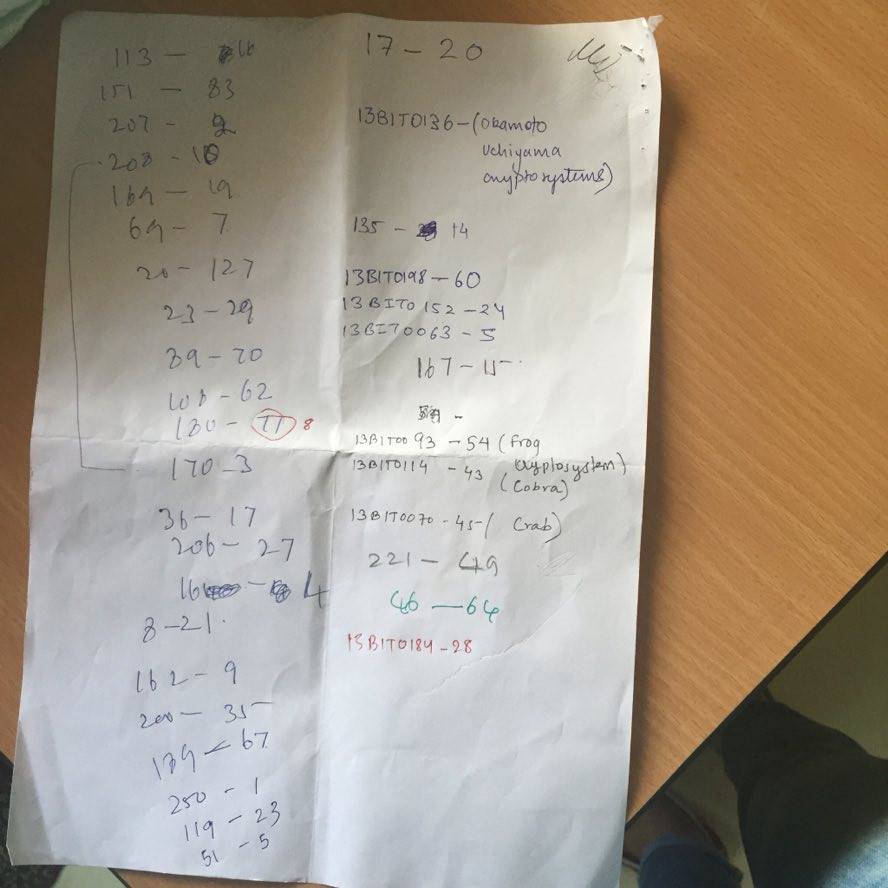 113 - 16
151 - 83
207 - 2
208 - 10
169 - 19
69 - 7
20 - 127
23 - 29
39 - 70
108 - 62
180 - 77 8
170 - 3
36 - 17
206 - 27
16 - 4
8 - 21
162 - 9
200 - 35
139 - 67
250 - 1
119 - 23
51 - 5
17 - 20
13BIT0136 - (Okamoto
Uchiyama
cryptosystems)
135 - 14
13BIT0198 - 60
13BIT0152 - 24
13BIT0063 - 5
167 - 15
13BIT0093 - 54 (Frog
cryptosystem)
13BIT0114 - 43
(Cobra)
13BIT0070 - 45 - ( Crab)
221 - 49
46 - 64
13BIT0184 - 28